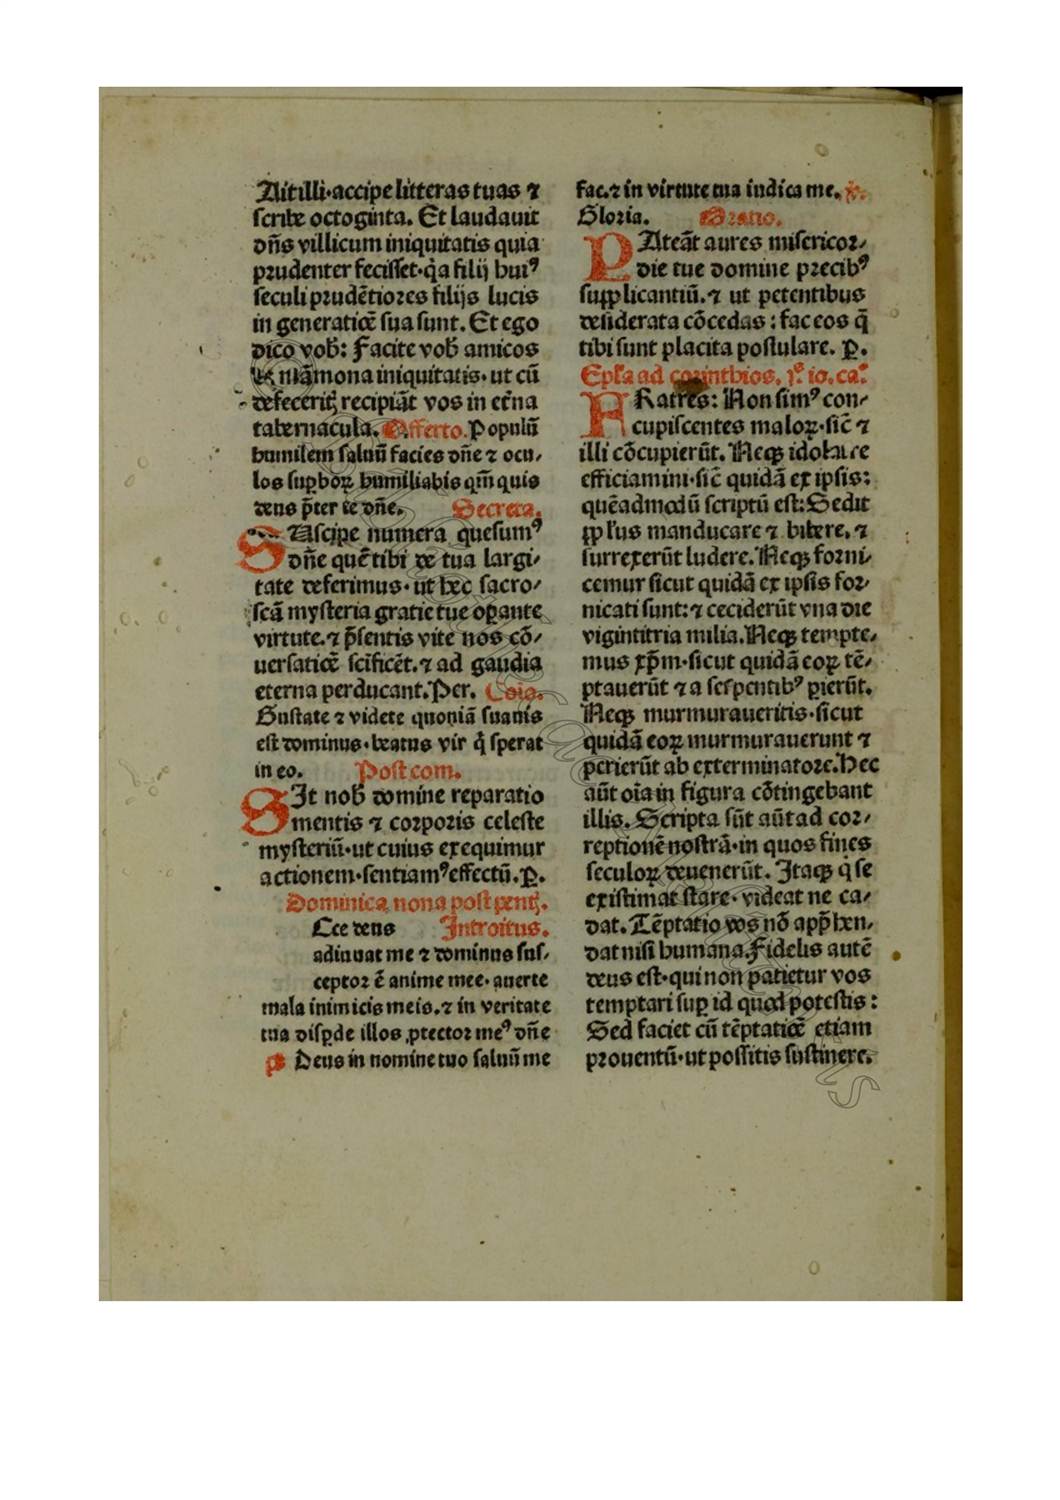 Ait illi·accipe litteras tuas ⁊
scribe octoginta. Et laudauit
dn̄s villicum iniquitatis quia
prudenter fecisset·q̇a filij huiꝰ
seculi prudētiores filijs lucis
in generatiōe sua sunt. Et ego
dico vob̄: Facite vob̄ amicos
de māmona iniquitatis·ut cū
defeceritꝭ recipiāt vos in et̄na
tabernacula. Offerto. Populū
humilem saluū facies dn̄e ⁊ ocu⸗
los suꝑboꝝ humiliabis qm̄ quis
deus p̄ter te dn̄e. Secreta.
SUscipe munera quesumꝰ
dn̄e quē tibi de tua largi⸗
tate deferimus·ut hec sacro⸗
scā mysteria gratie tue oꝑante
virtute.⁊ p̄sentis vite nos cō⸗
uersatiōe scīficēt.⁊ ad gaudia
eterna perducant. Per. Cōio.
Gustate ⁊ videte quoniā suauis
est dominus·beatus vir q̇ sperat
in eo. Post com.
SIt nob̄ domine reparatio
mentis ⁊ corporis celeste
mysteriū·ut cuius exequimur
actionem·sentiamꝰ effectū. Ꝑ.
Dominica nona post pentꝭ.
Ecce deus Introitus.
adiuuat me ⁊ dominus sus⸗
ceptor ē anime mee·auerte
mala inimicis meis.⁊ in veritate
tua disꝑde illos ꝓtector meꝰ dn̄e
p̄s Deus in nomine tuo saluū me
fac.⁊ in virtute tua iudica me. ℣.
Gloria. Oratio.
PAteāt aures misericor⸗
die tue domine precibꝰ
supplicantiū.⁊ ut petentibus
desiderata cōcedas: fac eos q̄
tibi sunt placita postulare. Ꝑ.
Epl̄a ad corinthios. j.ͤ io. ca.ͦ
FRatres: Non simꝰ con⸗
cupiscentes maloꝝ·sic̄ ⁊
illi cōcupierūt. Neqꝫ idolatre
efficiamini·sic̄ quidā ex ipsis:
quēadmodū scriptū est: Sedit
ppl̓us manducare ⁊ bibere.⁊
surrexerūt ludere. Neqꝫ forni⸗
cemur sicut quidā ex ipsis for⸗
nicati sunt:⁊ ceciderūt vna die
viginti tria milia. Neqꝫ tempte⸗
mus xp̄m·sicut quidā eoꝝ tē⸗
ptauerūt ⁊ a serpentibꝰ ꝑierūt.
Neqꝫ murmuraueritis·sicut
quidā eoꝝ murmurauerunt ⁊
perierūt ab exterminatore. Hec
aūt oīa in figura cōtingebant
illis. Scripta sūt aūt ad cor⸗
reptionē nostrā·in quos fines
seculoꝝ deuenerūt. Itaqꝫ q̇ se
existimat stare·videat ne ca⸗
dat. Tēptatio vos nō app̄hen⸗
dat nisi humana. Fidelis autē
deus est·qui non patietur vos
temptari suꝑ id quod potestis:
Sed faciet cū tēptatiōe etiam
prouentū·ut possitis sustinere.